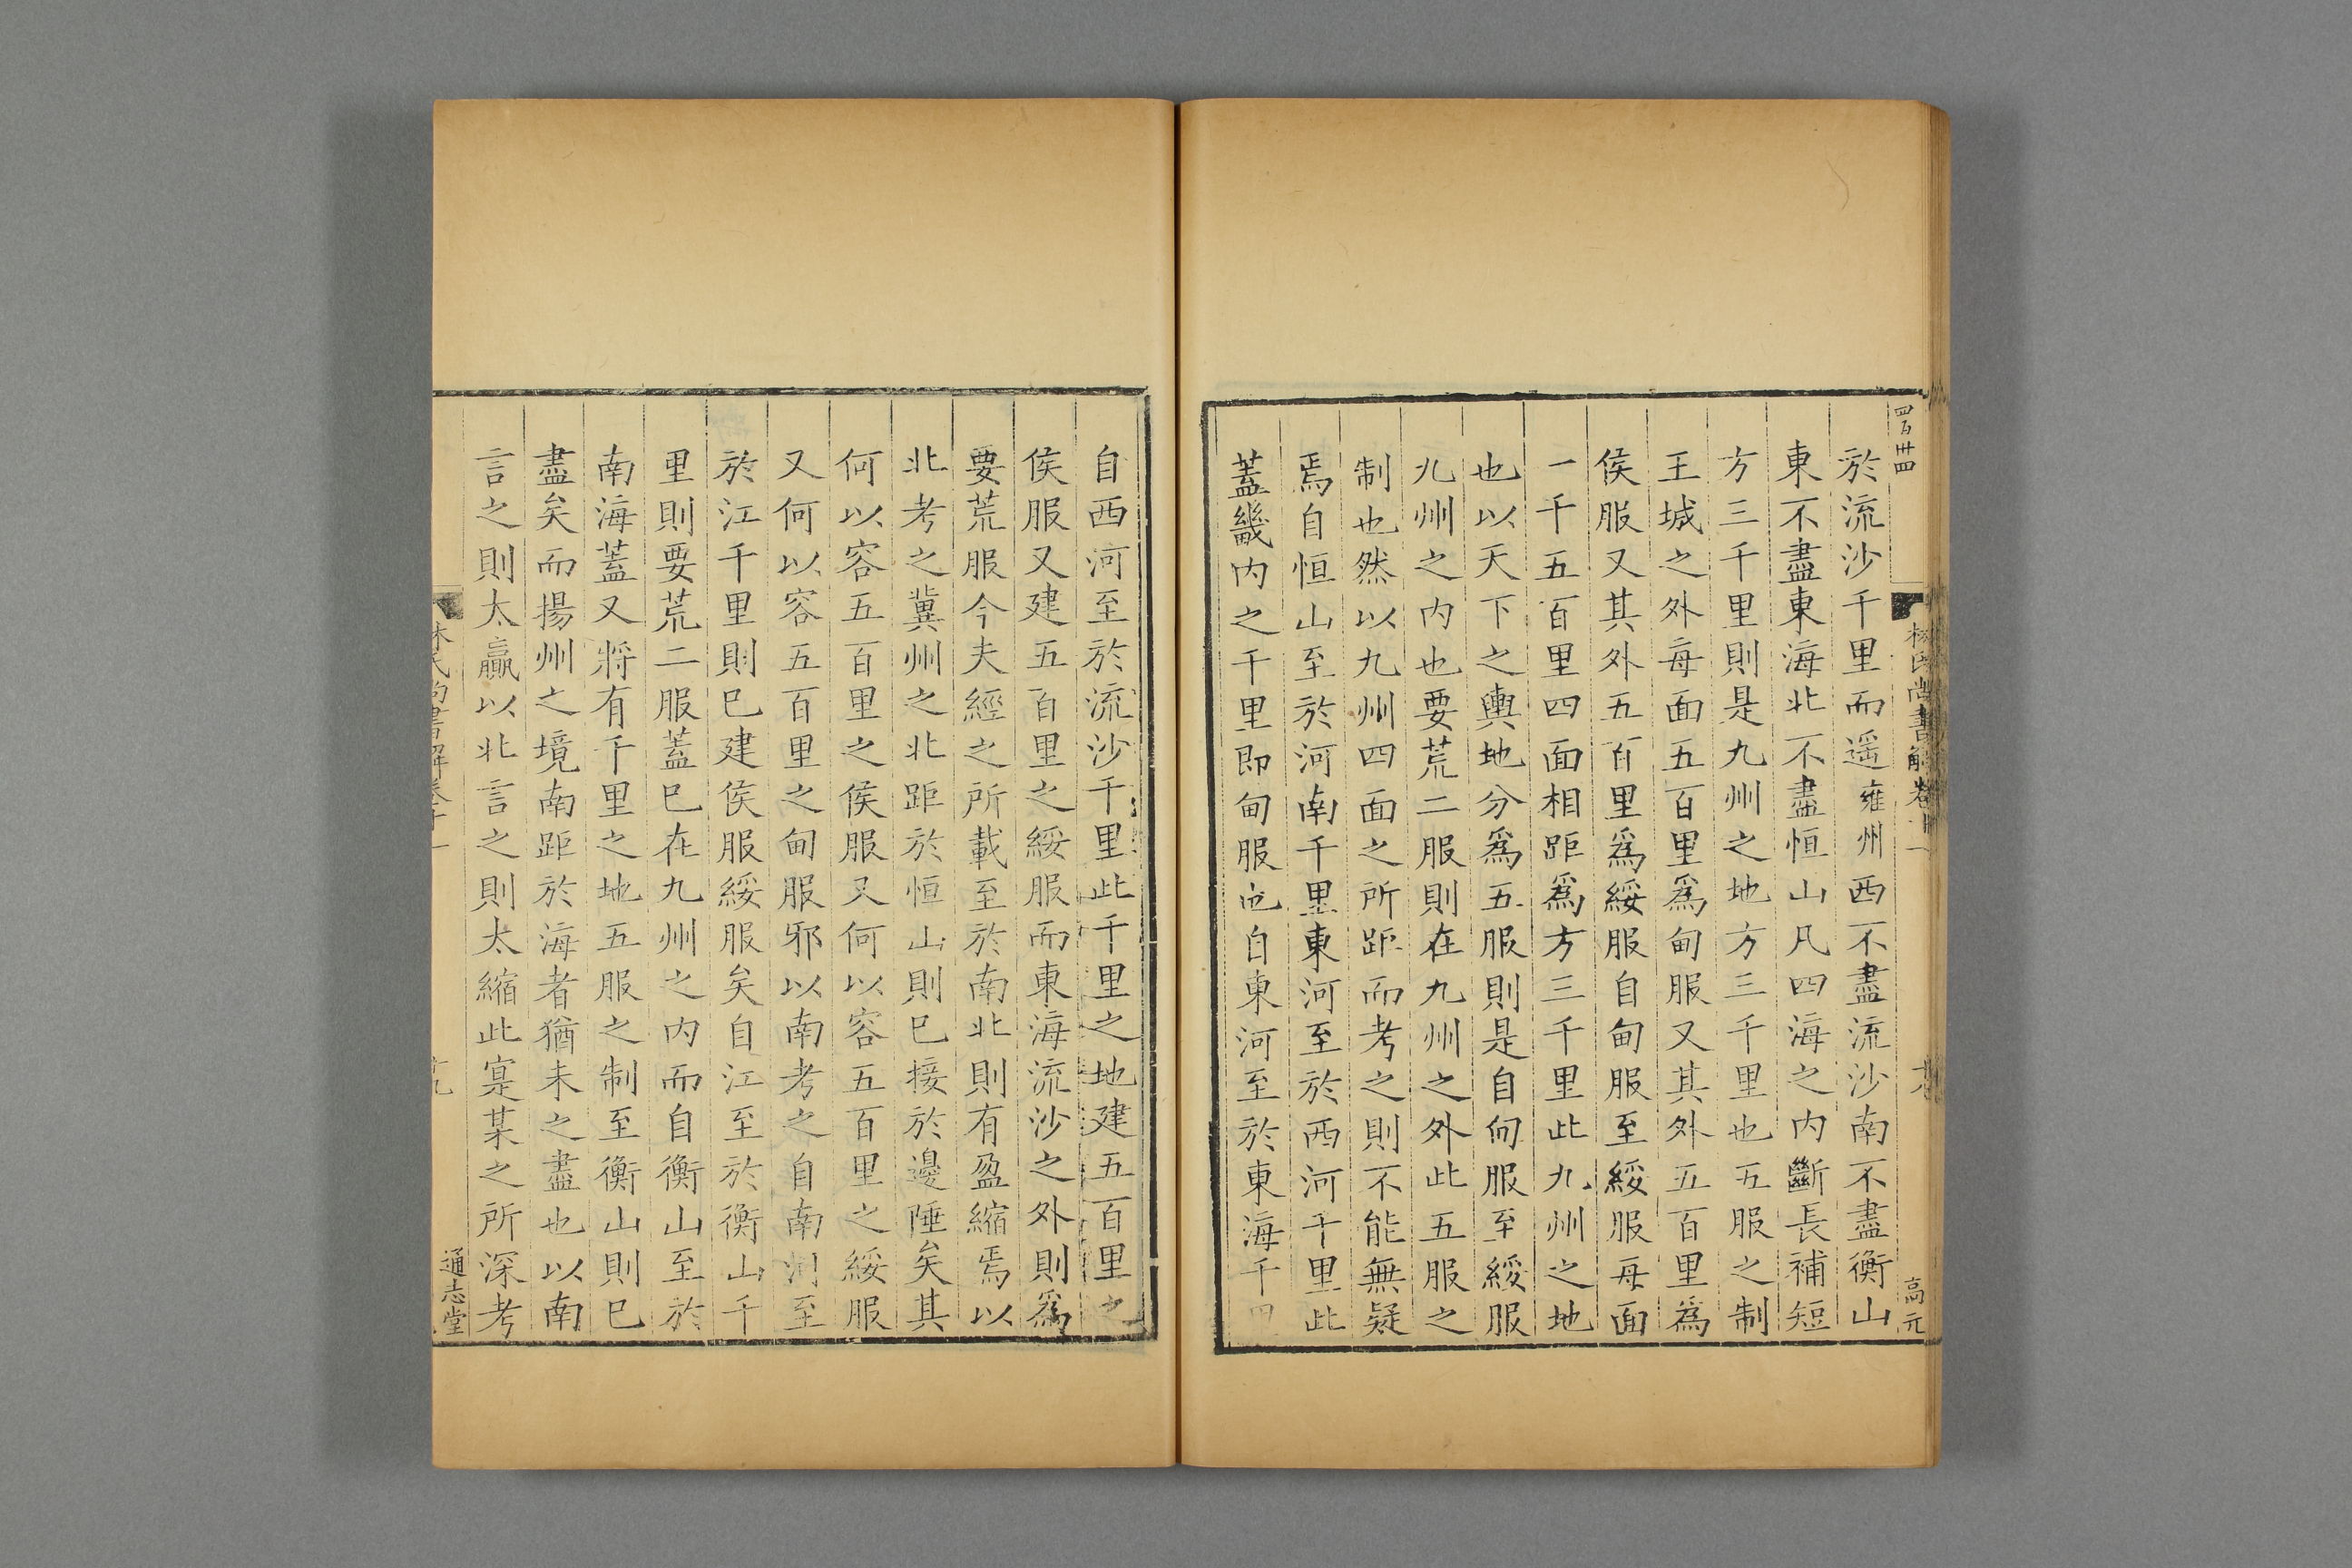 四百卅四
林氏尚書解卷十一
高元
於流沙千里而遥雍州西不盡流沙南不盡衡山
東不盡東海北不盡恒山凡四海之内斷長補短
方三千里則是九州之地方三千里也五服之制
王城之外每面五百里爲甸服又其外五百里爲
侯服又其外五百里爲綏服自甸服至綏服每面
一千五百里四面相距爲方三千里此九州之地
也以天下之輿地分爲五服則是自甸服至綏服
九州之内也要荒二服則在九州之外此五服之
制也然以九州四面之所距而考之則不能無疑
焉自恒山至於河南千里東河至於西河千里此
蓋畿内之千里即甸服也自東河至於東海千
自西河至於流沙千里此千里之地建五百里之
侯服又建五百里之綏服而東海流沙之外則爲
要荒服今夫經之所載至於南北則有盈縮焉以
北考之冀州之北距於恒山則巳接於邊陲矣其
何以容五百里之侯服又何以容五百里之綏服
又何以容五百里之甸服邪以南考之自南河至
於江千里則巳建侯服綏服矣自江至於衡山千
里則要荒二服蓋巳在九州之内而自衡山至於
南海蓋又將有千里之地五服之制至衡山則巳
盡矣而揚州之境南距於海者猶未之盡也以南
言之則太贏以北言之則太縮此寔某之所深考
林氏尚書解卷十一
十九
通志堂